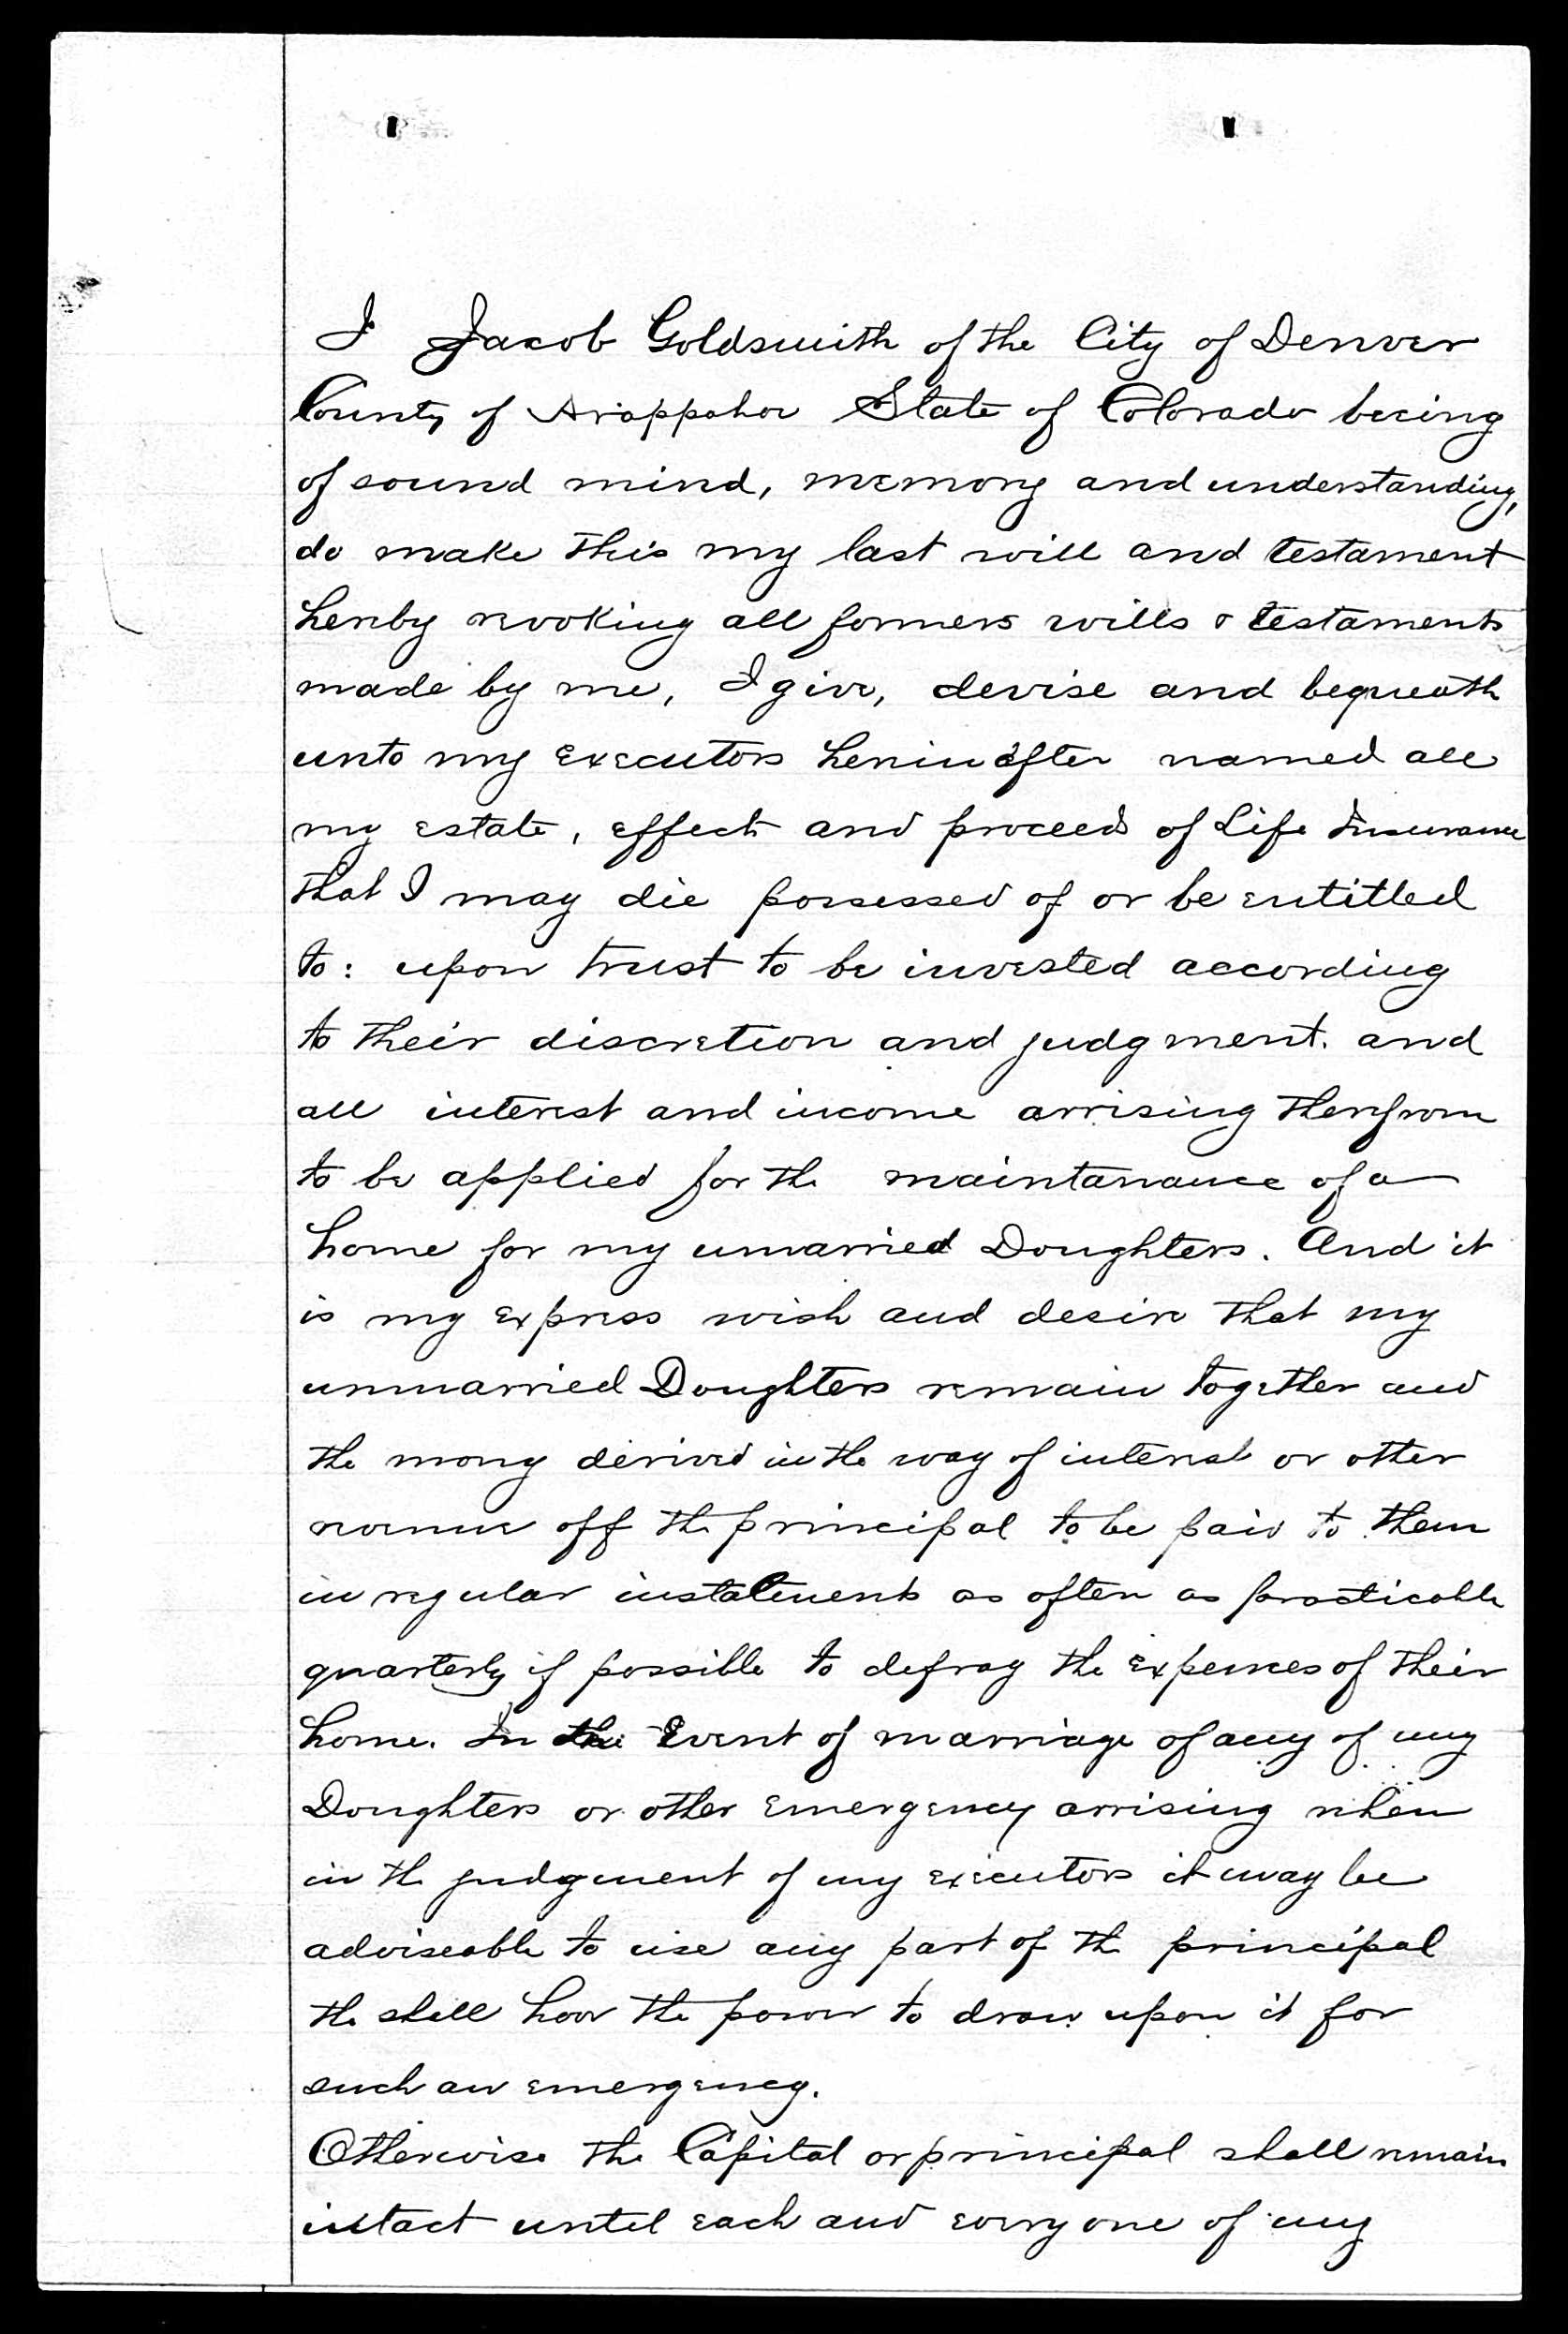 I Jacob Goldsmith of the City of Denver
County of Arappahoe State of Colorado beeing
of sound mind, memory and understanding,
do make this my last will and testament
hereby revoking all formers wills & testaments
made by me, I give, devise and bequeath
unto my executors hereinafter named all
my estate, effects and proceeds of Life Insurance
that I may die possessed of or be entitled
to: upon trust to be invested according
to their discretion and judgment. and
all interest and income arrising therefrom
to be applied for the maintanance of a
home for my unmarried Doughters. And it
is my express wish and desire that my
unmarried Doughters remain together and
the mony derived in the way of interest or other
revenue off the principal to be paid to them
in regular instalements as often as practicable
quarterly if possible to defray the expences of their
home. In the Event of marriage of any of my
Doughters or other emergency arrising when
in the judgment of my executors it may be
adviseable to use any part of the principal
the shall have the power to draw upon it for
such an emergency.
Otherwise the Capital or principal shall remain
intact until each and every one of my